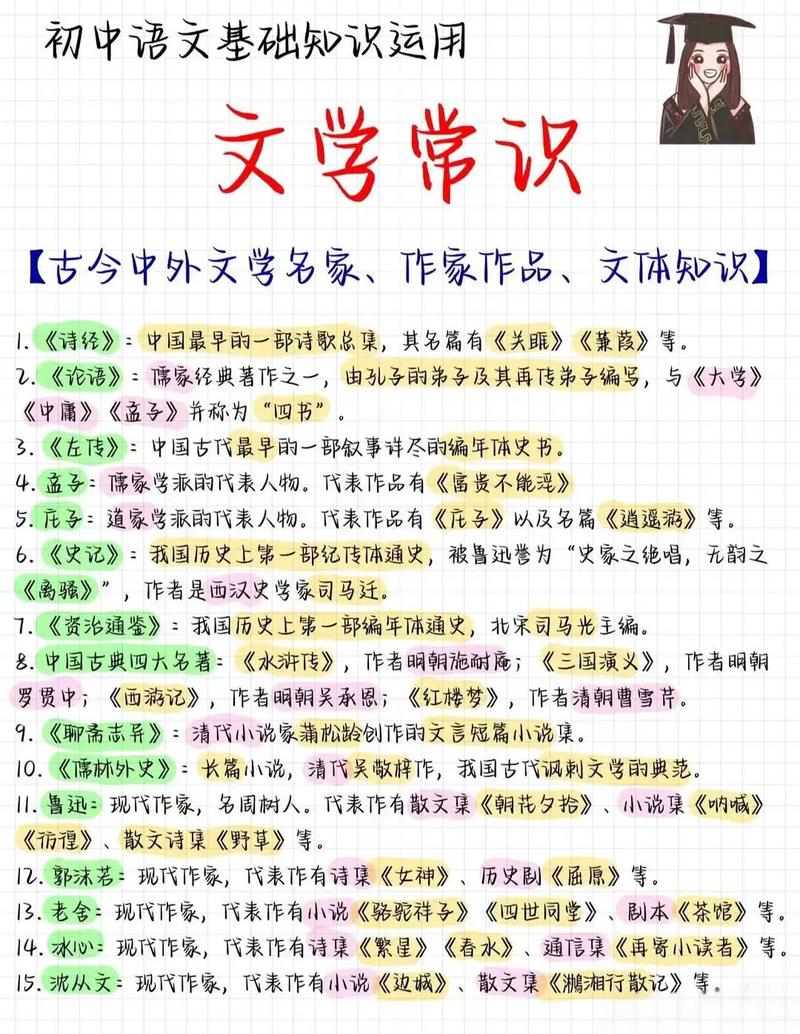 初中语文基础知识运用
文学常识
【古今中外文学名家、作家作品、文体知识】
1.《诗经》：中国最早的一部诗歌总集，其名篇有《关雎》《蒹葭》等。
2.《论语》：儒家经典著作之一，由孔子的弟子及其再传弟子编写，与《大学》
《中庸》《孟子》并称为“四书”。
3.《左传》：中国古代最早的一部叙事详尽的编年体史书。
4.孟子：儒家学派的代表人物。代表作品有《富贵不能淫》
5.庄子：道家学派的代表人物。代表作品有《庄子》以及名篇《逍遥游》等。
6.《史记》：我国历史上第一部纪传体通史，被鲁迅誉为“史家之绝唱，无韵之
《离骚》”，作者是西汉史学家司马迁。
7.《资治通鉴》：我国历史上第一部编年体通史，北宋司马光主编。
8.中国古典四大名著：《水浒传》，作者明朝施耐庵；《三国演义》，作者明朝
罗贯中；《西游记》，作者明朝吴承恩；《红楼梦》，作者清朝曹雪芹。
9.《聊斋志异》：清代小说家蒲松龄创作的文言短篇小说集。
10.《儒林外史》：长篇小说，清代吴敬梓作，我国古代讽刺文学的典范。
11.鲁迅：现代作家，名周树人。代表作有散文集《朝花夕拾》、小说集《呐喊》
《彷徨》、散文诗集《野草》等。
12.郭沫若：现代作家，代表作有诗集《女神》、历史剧《屈原》等。
13.老舍：现代作家，代表作有小说《骆驼祥子》《四世同堂》、剧本《茶馆》等。
14.冰心：现代作家，代表作有诗集《繁星》《春水》、通信集《再寄小读者》等。
15.沈从文：现代作家，代表作有小说《边城》、散文集《湘行散记》等。